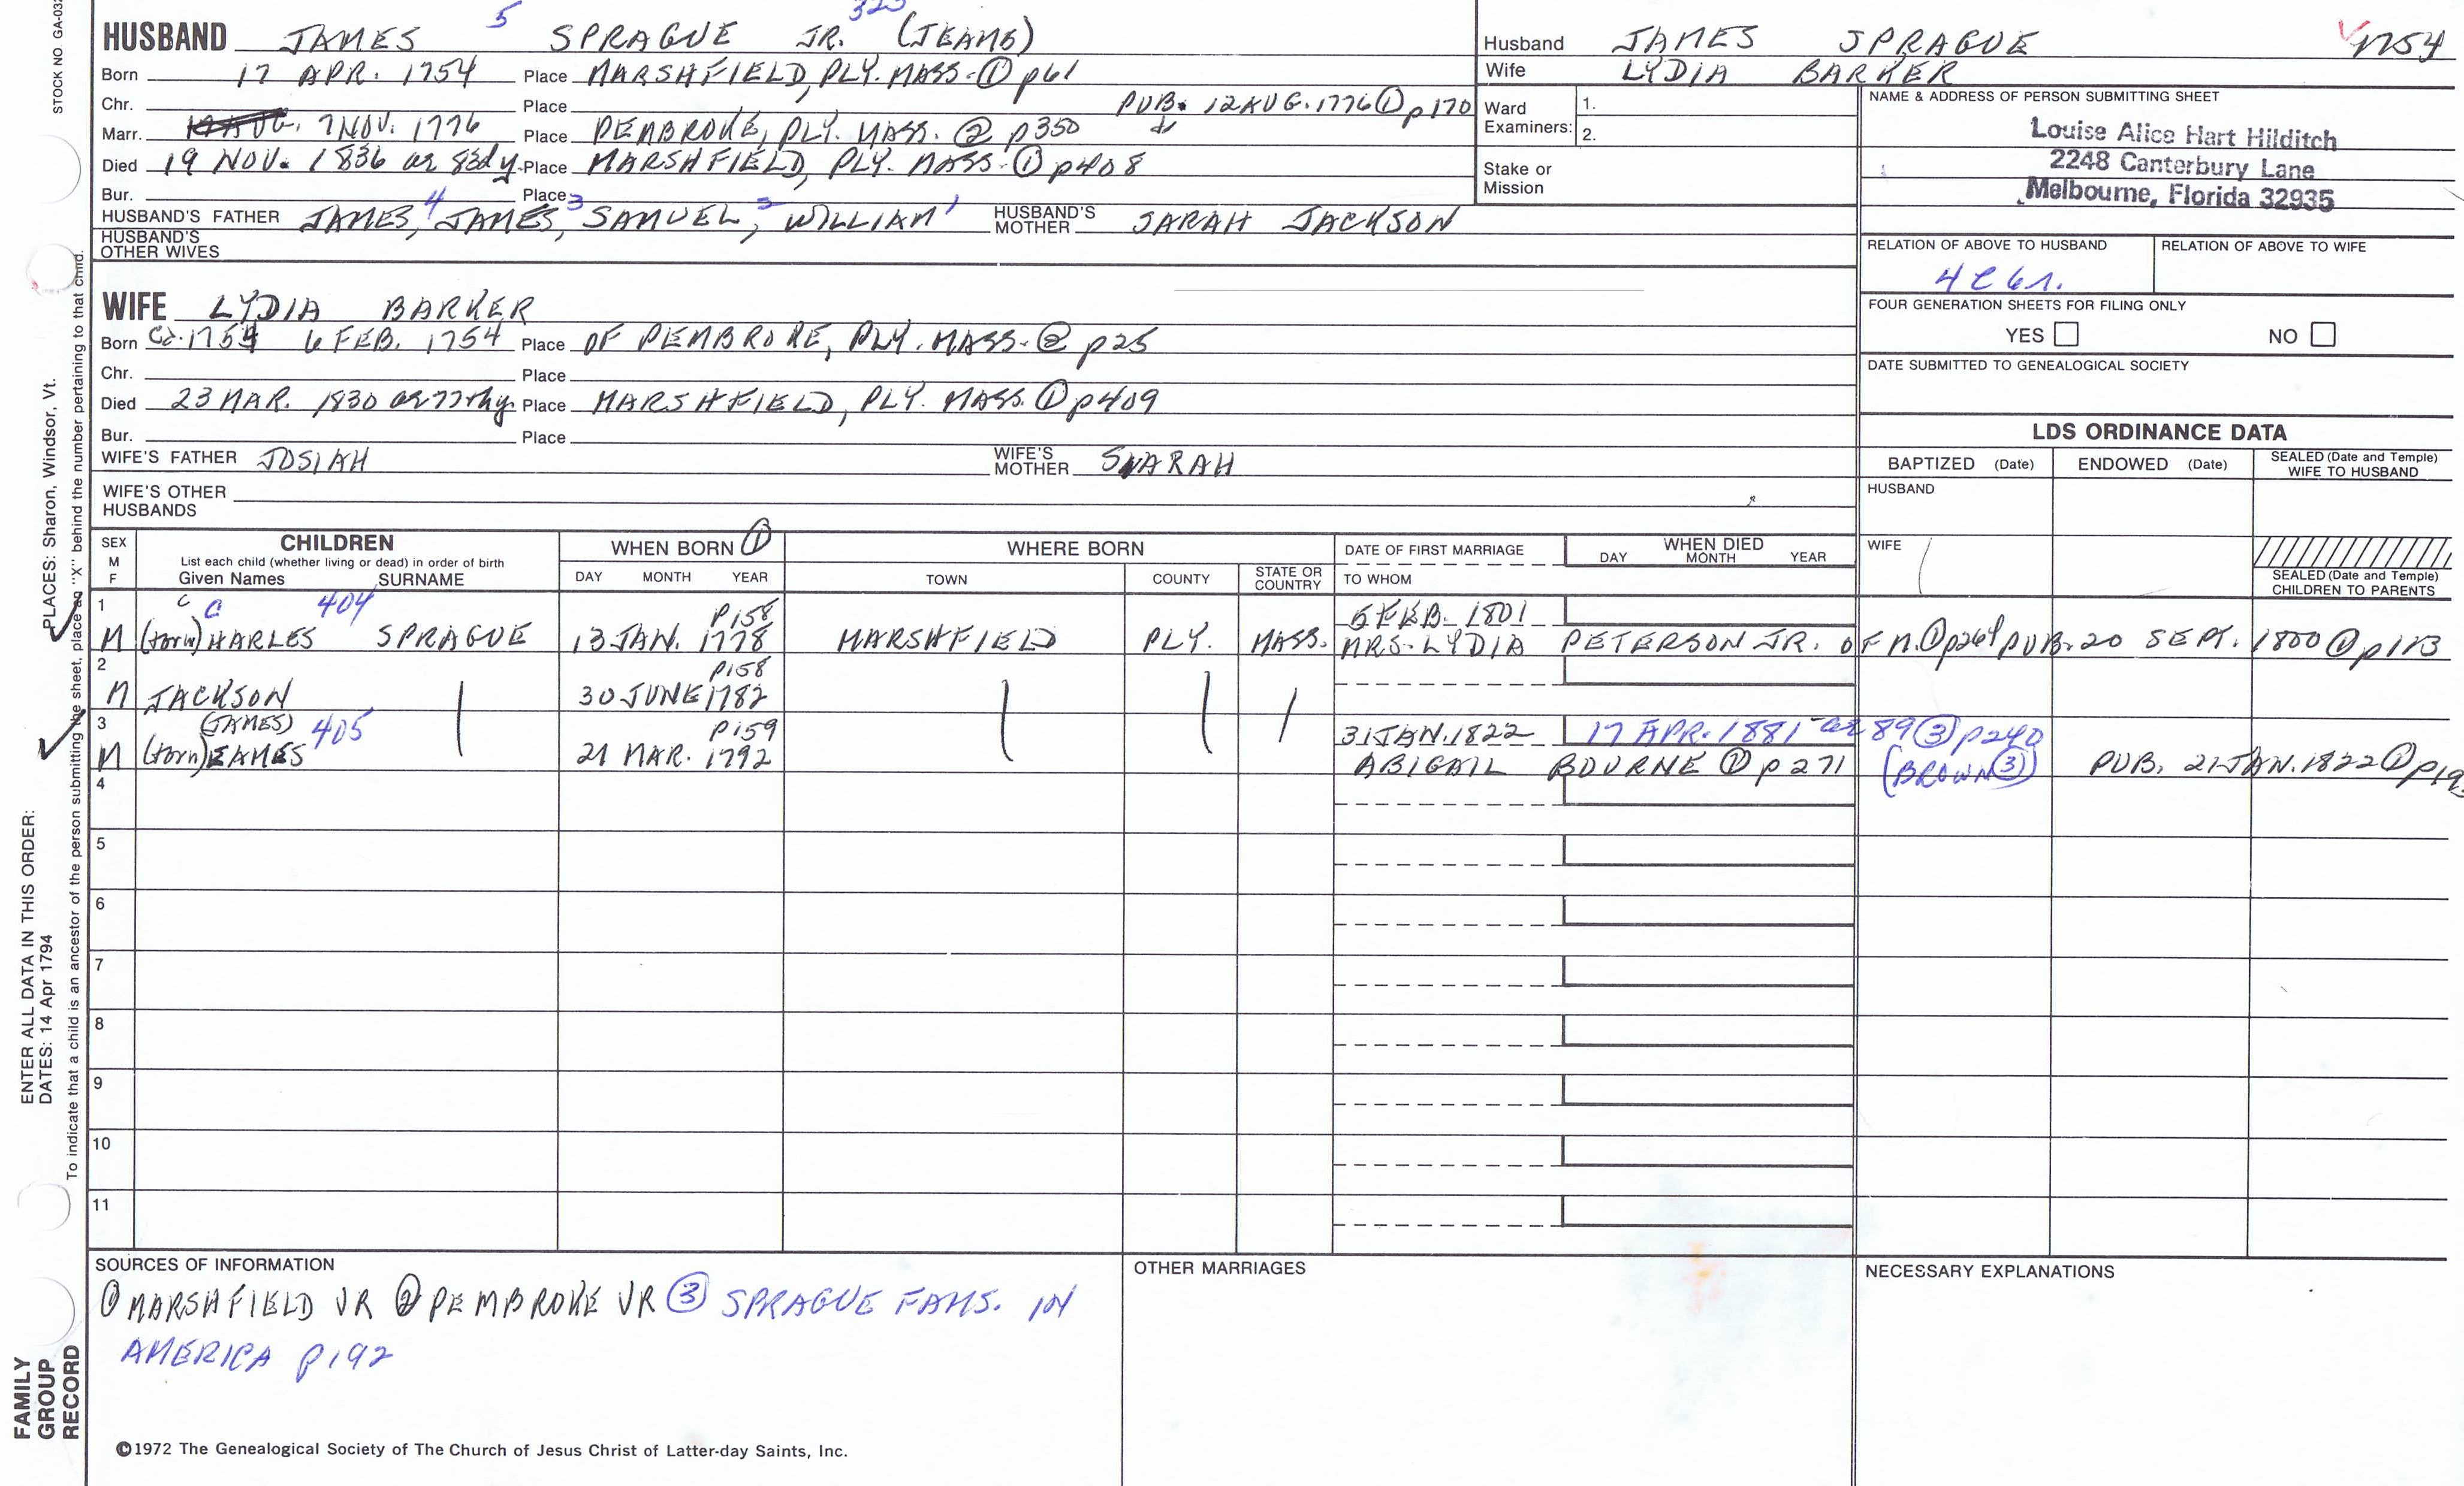 STOCK NO GA-03
5 323
HUSBAND JAMES SPRAGUE JR. (JEAMS)
Born 17 APR. 1754 Place MARSHFIELD, PLY. MASS. ① p61
Chr. Place PUB. 12 AUG. 1776 ① p170
Marr. 7 NOV. 1776 Place PEMBROKE, PLY. MASS. ② p350
Died 19 NOV. 1836 ae 83d y. Place MARSHFIELD, PLY. MASS. ① p408
Bur. Place
HUSBAND'S FATHER JAMES,4 JAMES,3 SAMUEL,2 WILLIAM1 HUSBAND'S MOTHER SARAH JACKSON
HUSBAND'S OTHER WIVES
WIFE LYDIA BARKER
Born Ca. 1754 6 FEB. 1754 Place OF PEMBROKE, PLY. MASS. ② p25
Chr. Place
Died 23 MAR. 1830 ae 77thy. Place MARSHFIELD, PLY. MASS. ① p409
Bur. Place
WIFE'S FATHER JOSIAH WIFE'S MOTHER SARAH
WIFE'S OTHER HUSBANDS
Husband JAMES SPRAGUE 1754
Wife LYDIA BARKER
Ward Examiners: 1. 2.
Stake or Mission
NAME & ADDRESS OF PERSON SUBMITTING SHEET
Louise Alice Hart Hilditch
2248 Canterbury Lane
Melbourne, Florida 32935
RELATION OF ABOVE TO HUSBAND RELATION OF ABOVE TO WIFE
4C6r.
FOUR GENERATION SHEETS FOR FILING ONLY
YES NO
DATE SUBMITTED TO GENEALOGICAL SOCIETY
LDS ORDINANCE DATA
BAPTIZED (Date) ENDOWED (Date) SEALED (Date and Temple) WIFE TO HUSBAND
HUSBAND
WIFE
SEALED (Date and Temple) CHILDREN TO PARENTS
SEX M F
CHILDREN
List each child (whether living or dead) in order of birth
Given Names SURNAME
WHEN BORN ①
DAY MONTH YEAR
WHERE BORN
TOWN COUNTY STATE OR COUNTRY
DATE OF FIRST MARRIAGE
TO WHOM
WHEN DIED
DAY MONTH YEAR
1 C C 404 P158 5 FEB. 1801
M (torn) HARLES SPRAGUE 13 JAN. 1778 MARSHFIELD PLY. MASS. MRS. LYDIA PETERSON JR. OF M. ① p264 PUB. 20 SEPT. 1800 ① p183
2 P158
M JACKSON 30 JUNE 1782
3 (JAMES) 405 P159 31 JAN. 1822 17 APR. 1881 ae 89 ③ p240
M (torn) EAMES 21 MAR. 1792 ABIGAIL BOURNE ① p271 (BROWN ③) PUB. 21 JAN. 1822 ①
4
5
6
7
8
9
10
11
SOURCES OF INFORMATION
① MARSHFIELD VR ② PEMBROKE VR ③ SPRAGUE FAMS. IN
AMERICA p192
OTHER MARRIAGES
NECESSARY EXPLANATIONS
©1972 The Genealogical Society of The Church of Jesus Christ of Latter-day Saints, Inc.
FAMILY GROUP RECORD
ENTER ALL DATA IN THIS ORDER:
DATES: 14 Apr 1794
PLACES: Sharon, Windsor, Vt.
To indicate that a child is an ancestor of the person submitting the sheet, place an "X" behind the number pertaining to that child.